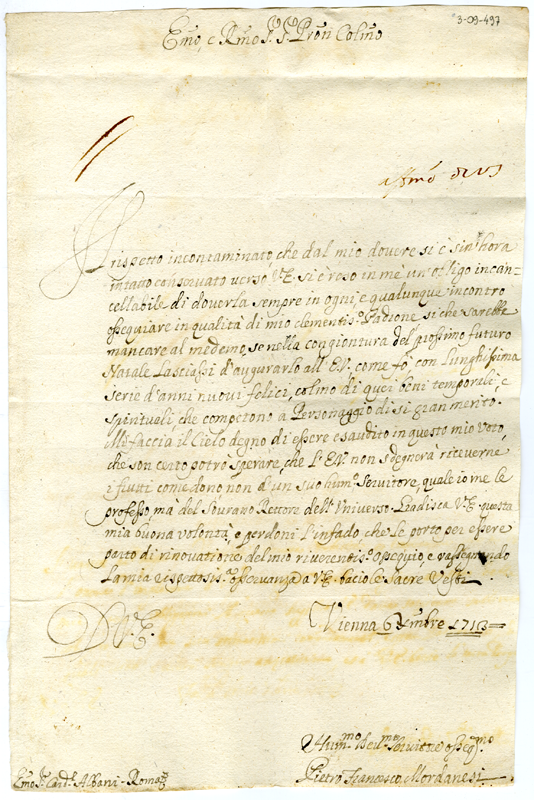 3-09-497
Emo, e Rmo Sr. Sr. Pron Colmo
Il rispetto incontaminato, che dal mio dovere si è sin'hora
intatto conservato verso V.E. si è reso in me un'obligo incan=
cellabile di doverla sempre in ogni, e qualunque incontro
osseguiare in qualità di mio clementis.o Padrone si che sarebbe
mancare al medemo, se nella congiontura del prossimo futuro
Natale Lasciassi d'augurarlo all'E.V. come fò, con Lunghissima
serie d'anni nuovi felici, colmo di quei beni temporali, e
spirituali, che competono a Personaggio di si gran merito.
Mi faccia il Cielo degno di essere esaudito in questo mio Voto,
che son certo potrò sperare, che L'E.V. non sdegnerà riceverne
i frutti come dono, non d'un suo hum.o Servitore, quale io me le
professo, ma del Sovrano Rettore dell'Universo. Gradisca V.E. questa
mia buona volontà, e perdoni L'infado, che le porto per essere
parto di rinovatione del mio riverentis.o ossequio, e rassegnando
La mia rispettosis.a osservanza a V.E. bacio le Sacre Vesti
D V.E.
Vienna 6 Xmbre 1713=
Hum.mo Dev.mo Servitore osseq.mo
Pietro Francesco Mordanesi
Emo Sr. Card.e Albani - Roma